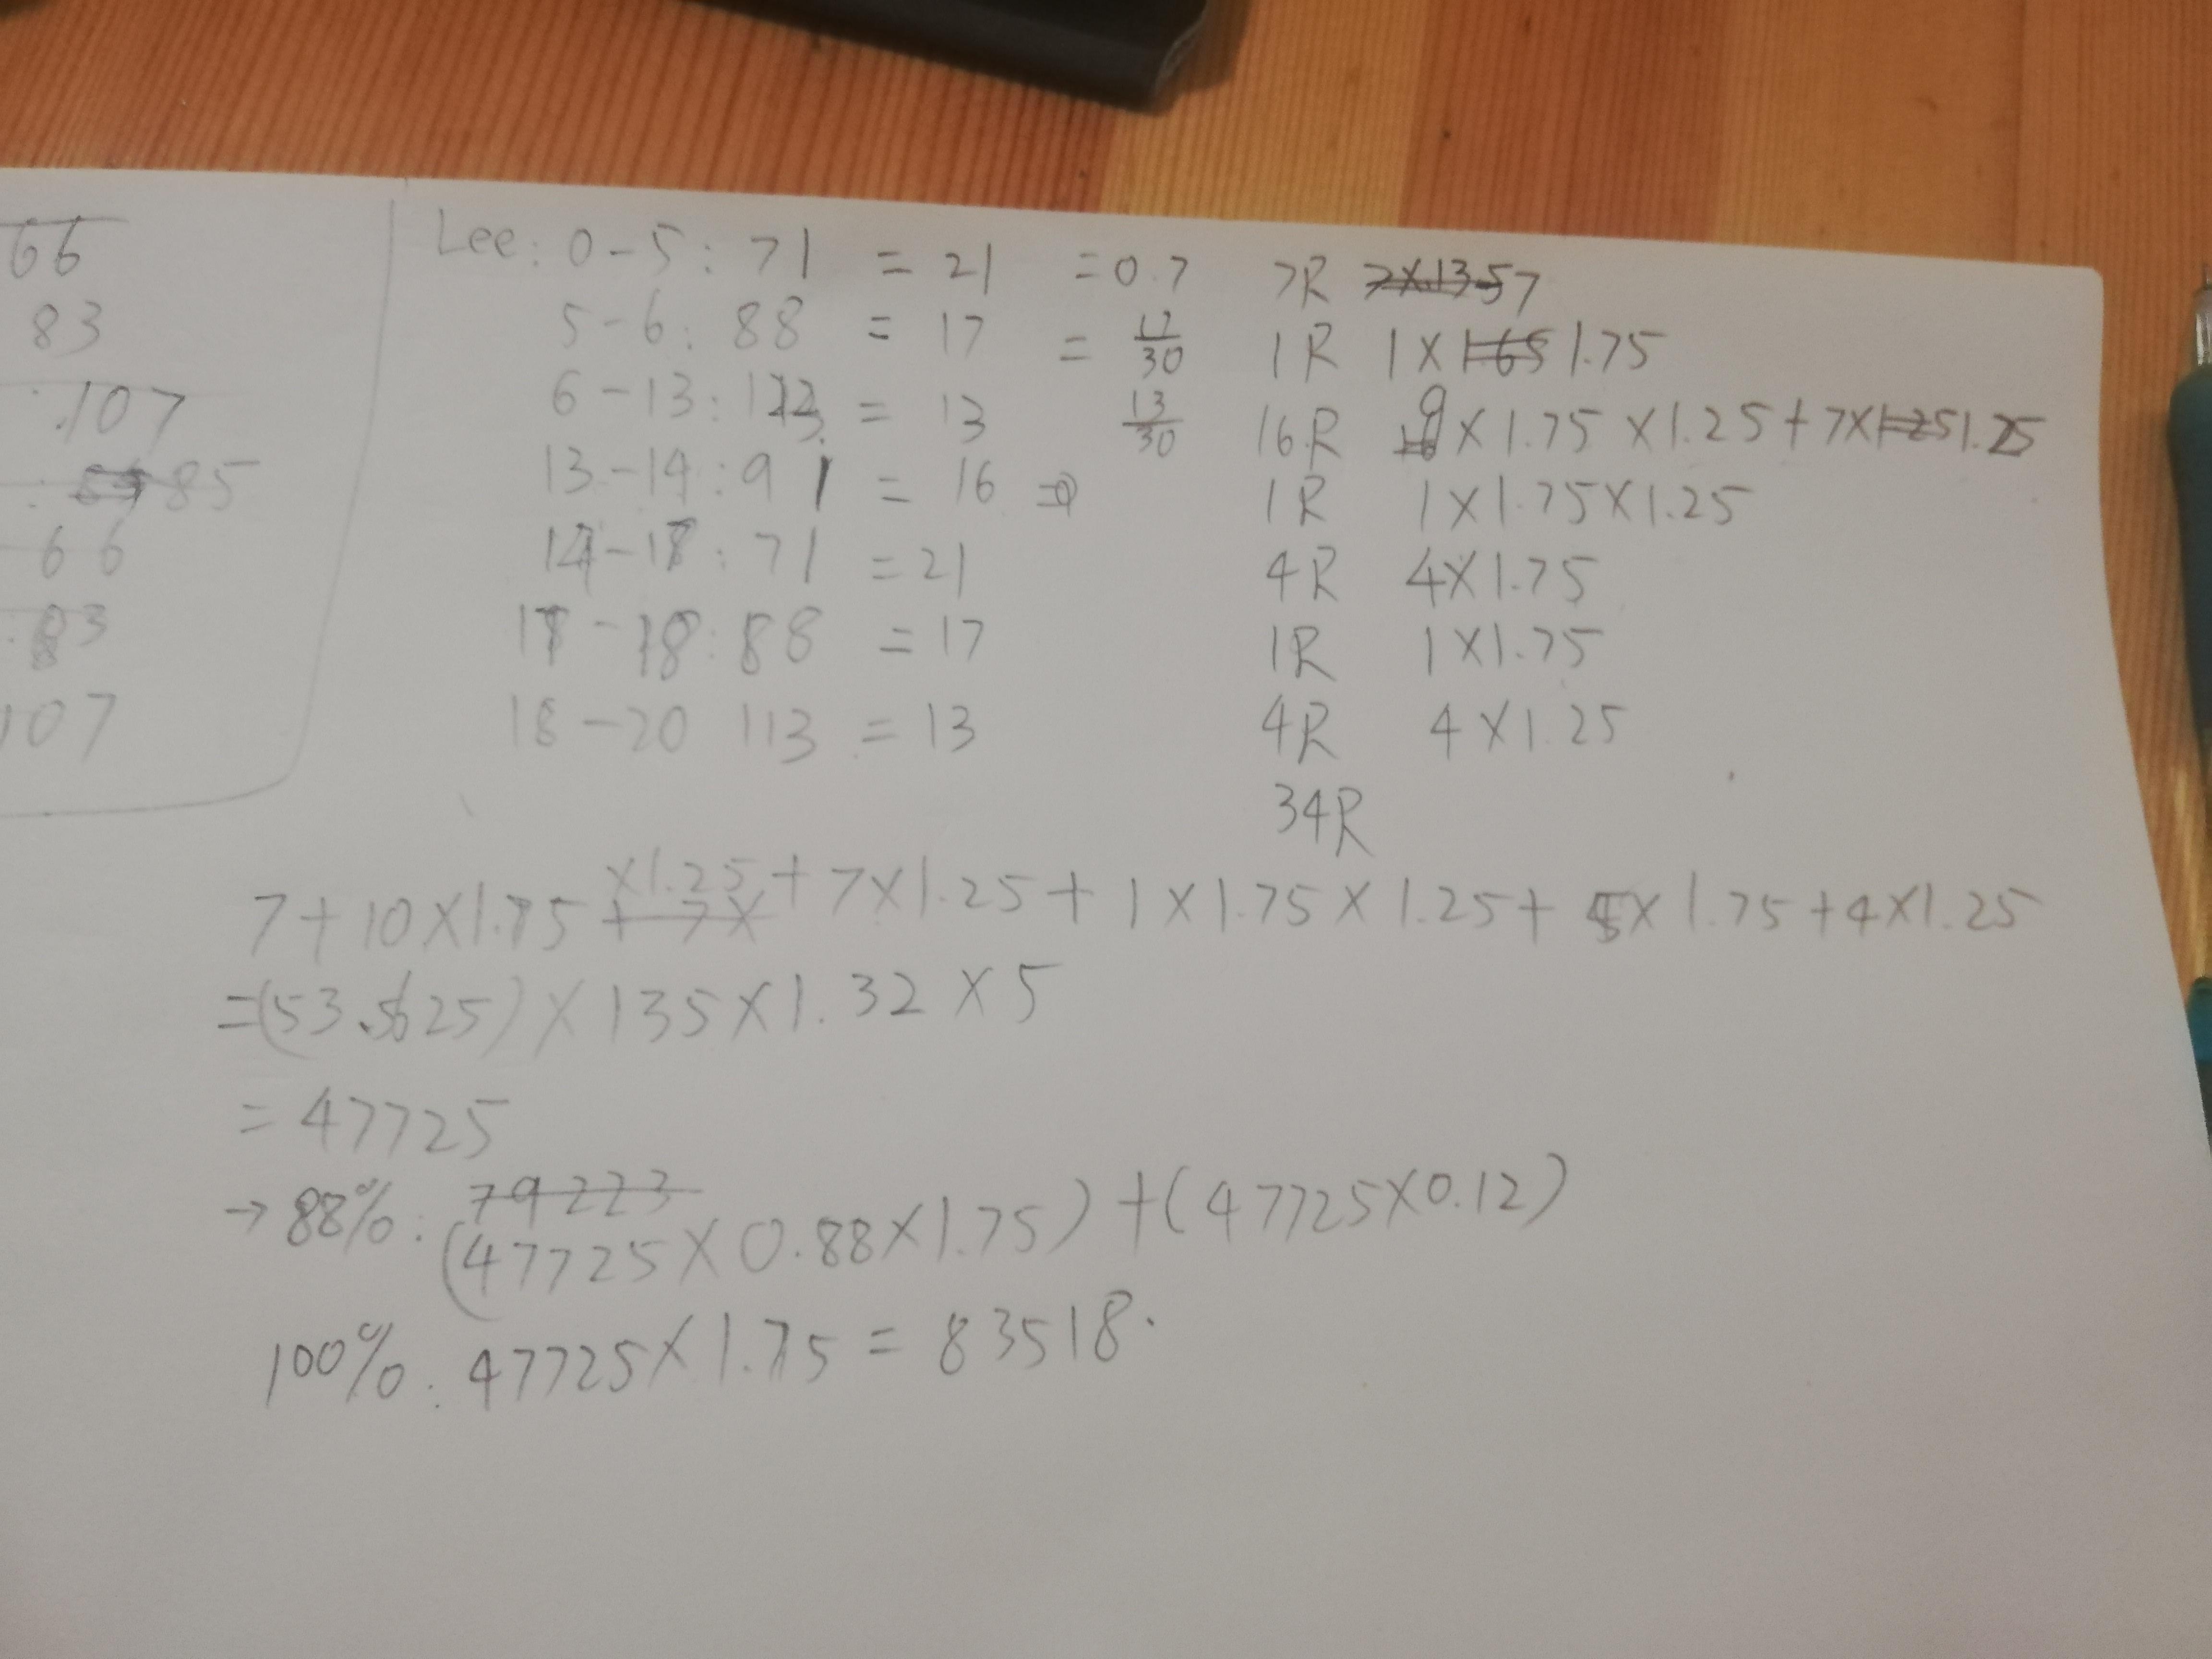 66
83
107
85
66
83
107
Lee: 0-5: 71 = 21 = 0.7 7R 7×1.35 7
5-6: 88 = 17 = 17/30 1R 1×1.65 1.75
6-13: 113 = 13 13/30 16R 9×1.75×1.25+7×1.25 1.25
13-14: 91 = 16 ⇒ 1R 1×1.75×1.25
14-17: 71 = 21 4R 4×1.75
17-18: 88 = 17 1R 1×1.75
18-20 113 = 13 4R 4×1.25
34R
7+10×1.75 +7× ×1.25+7×1.25+1×1.75×1.25+5×1.75+4×1.25
=(53.5625)×135×1.32×5
=47725
→88%: 79223
(47725×0.88×1.75)+(47725×0.12)
100%: 47725×1.75=83518.